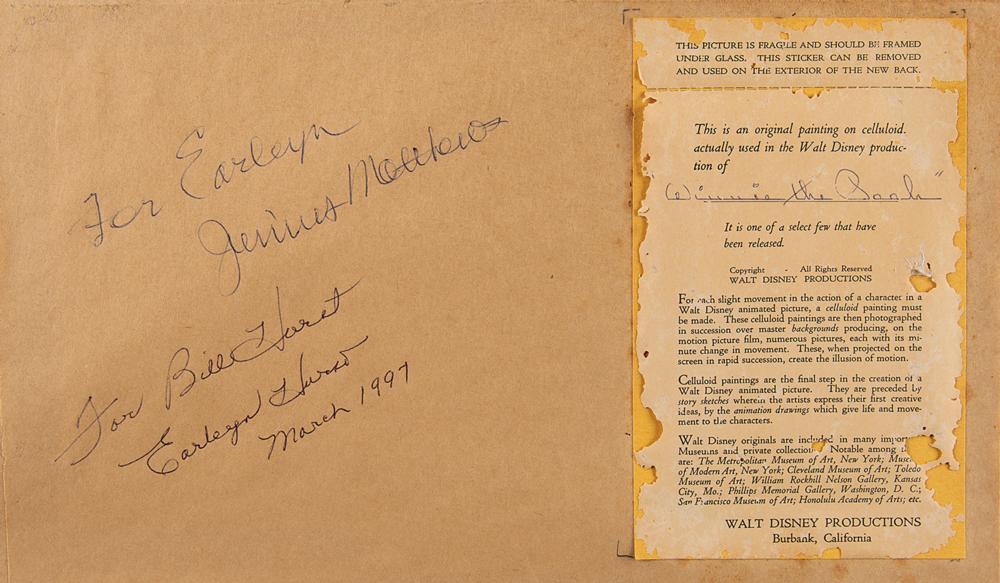 For Earleyn
Junius Matthews
For Bill Hurst
Earleyn Hurst
March 1997
THIS PICTURE IS FRAGILE AND SHOULD BE FRAMED
UNDER GLASS. THIS STICKER CAN BE REMOVED
AND USED ON THE EXTERIOR OF THE NEW BACK.
This is an original painting on celluloid.
actually used in the Walt Disney produc-
tion of
Winnie the Pooh"
It is one of a select few that have
been released.
Copyright - All Rights Reserved
WALT DISNEY PRODUCTIONS
For each slight movement in the action of a character in a
Walt Disney animated picture, a celluloid painting must
be made. These celluloid paintings are then photographed
in succession over master backgrounds producing, on the
motion picture film, numerous pictures, each with its mi-
nute change in movement. These, when projected on the
screen in rapid succession, create the illusion of motion.
Celluloid paintings are the final step in the creation of a
Walt Disney animated picture. They are preceded by
story sketches wherein the artists express their first creative
ideas, by the animation drawings which give life and move-
ment to the characters.
Walt Disney originals are included in many
Museums and private collection Notable among
are: The Metropolitan Museum of Art, New York; Museu
of Modern Art, New York; Cleveland Museum of Art; Toledo
Museum of Art; William Rockhill Nelson Gallery, Kansas
City, Mo.; Phillips Memorial Gallery, Washington, D. C.;
San Francisco Museum of Art; Honolulu Academy of Arts; etc.
WALT DISNEY PRODUCTIONS
Burbank, California